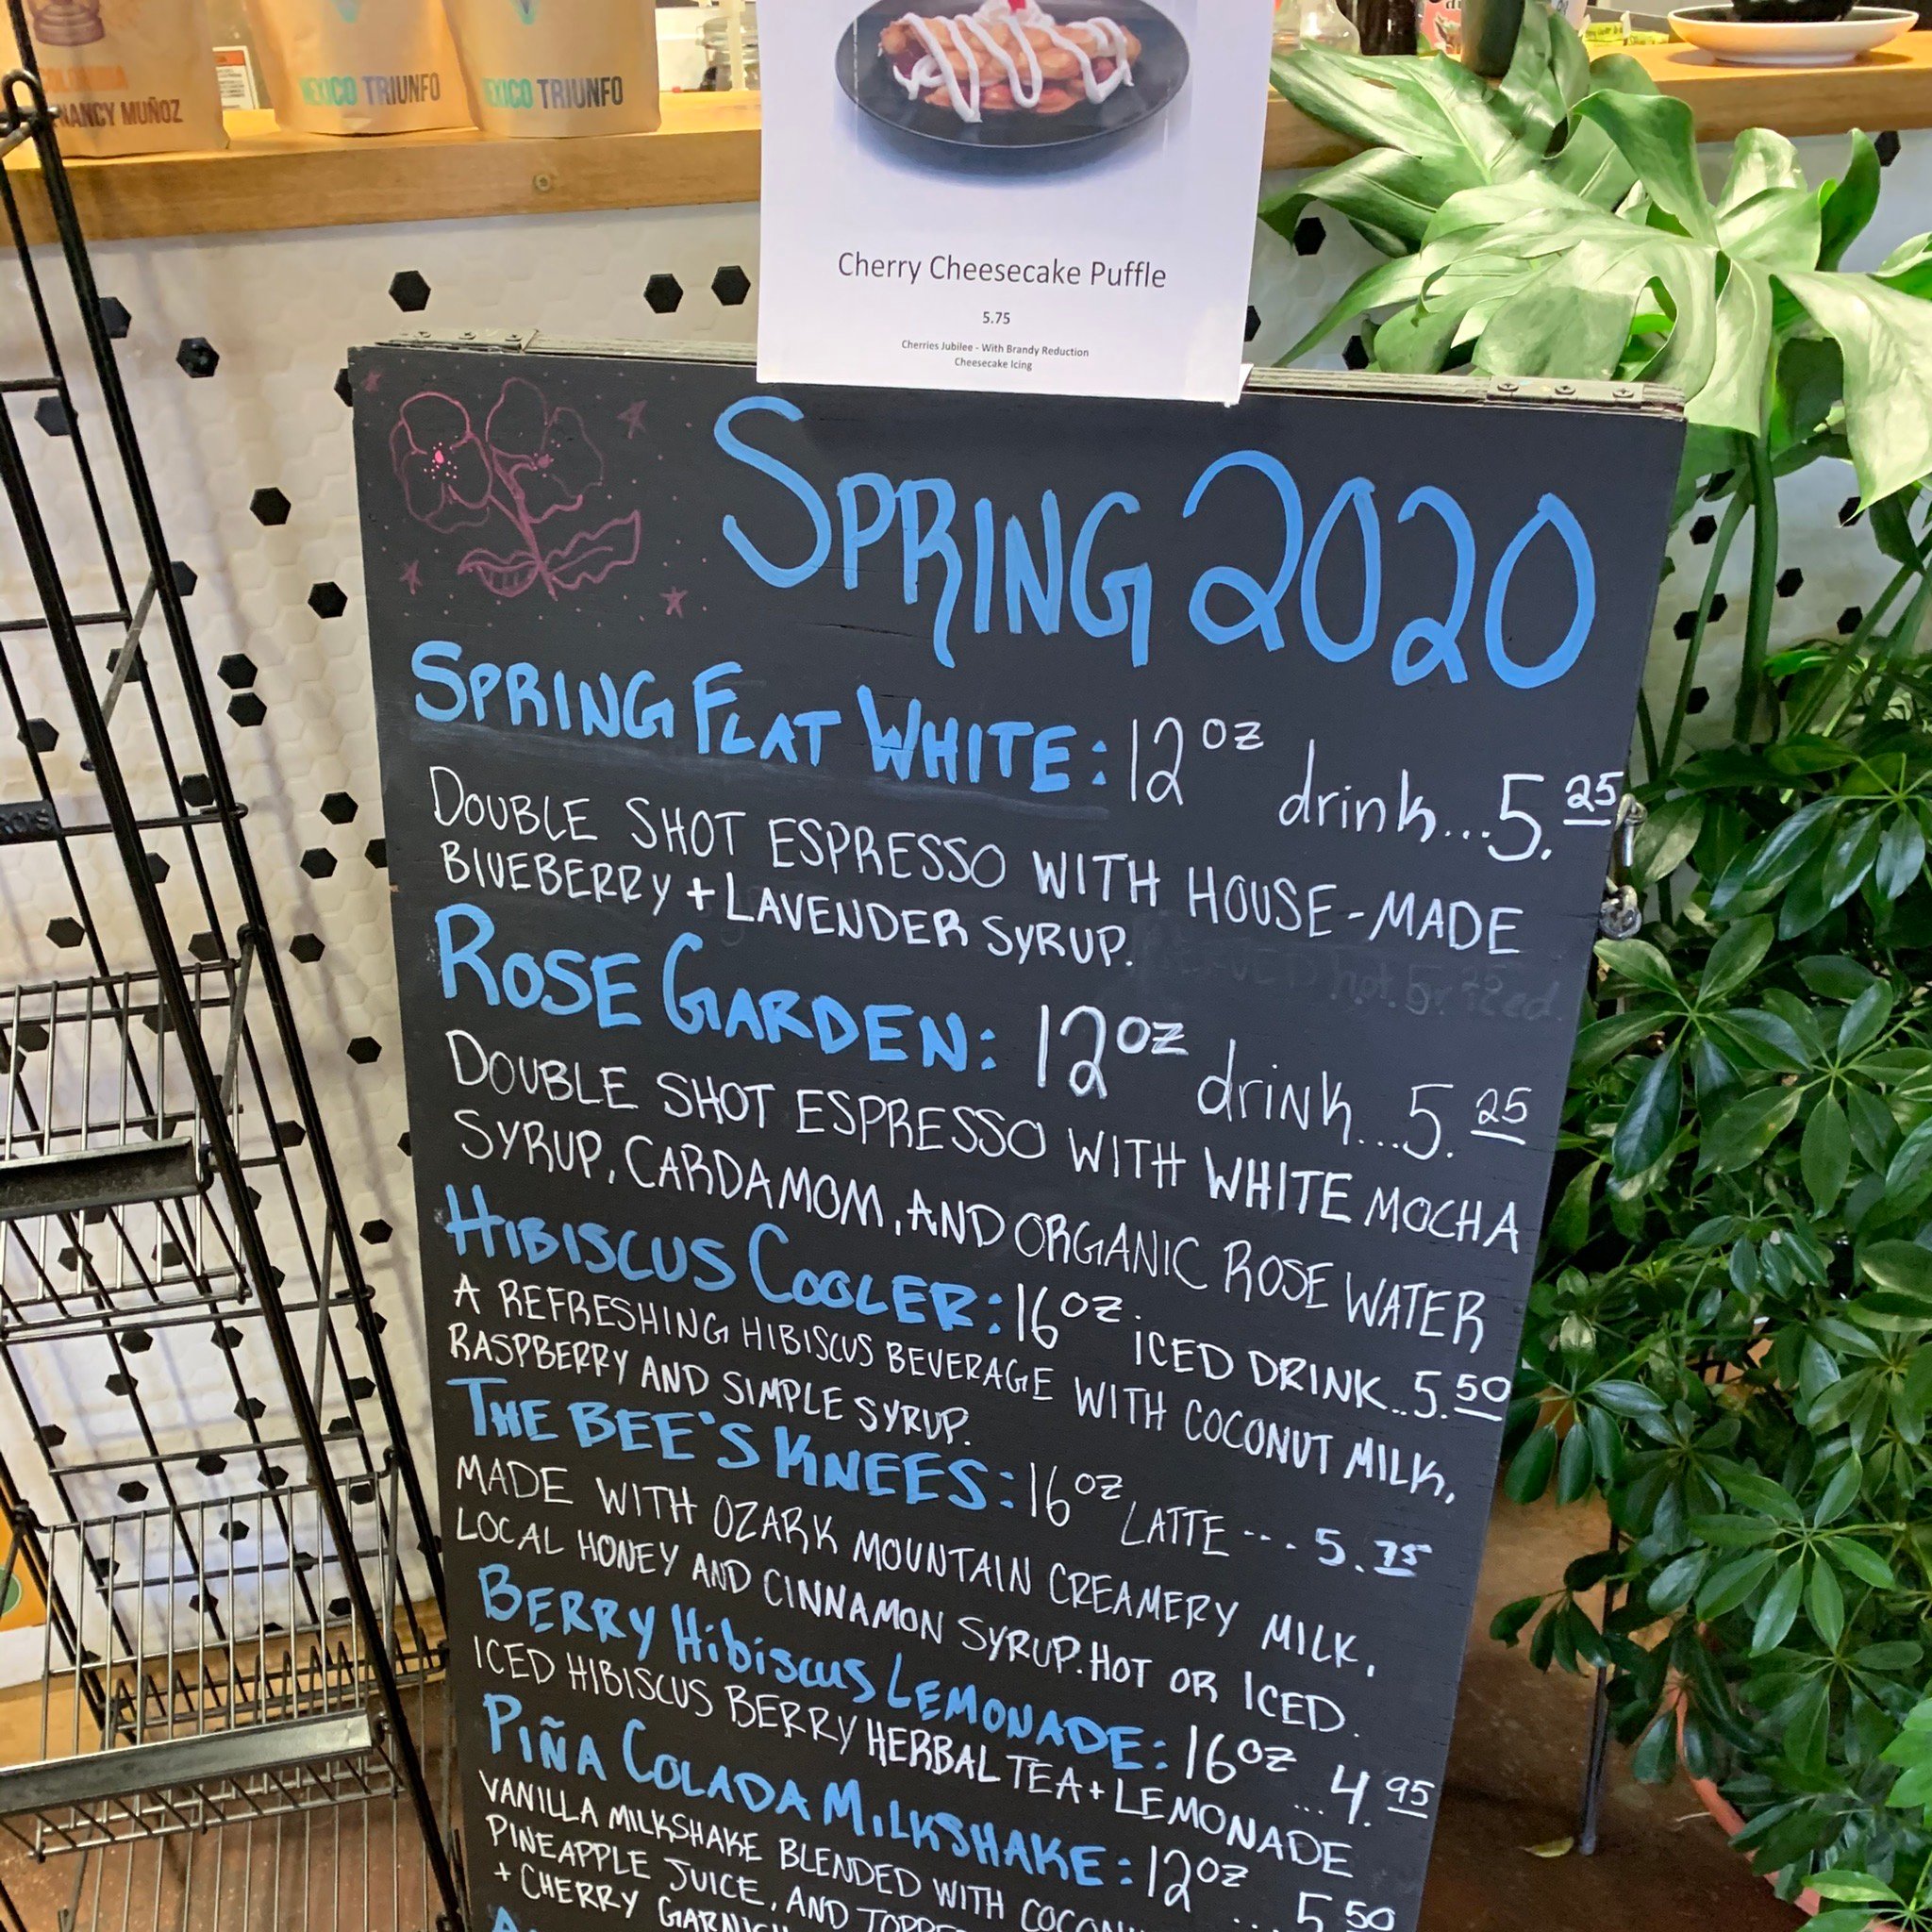 NANCY MUÑOZ
MEXICO TRIUNFO
MEXICO TRIUNFO
Cherry Cheesecake Puffle
5.75
Cherries Jubilee - With Brandy Reduction
Cheesecake Icing
SPRING 2020
SPRING FLAT WHITE: 12 oz drink...5.25
DOUBLE SHOT ESPRESSO WITH HOUSE-MADE
BLUEBERRY + LAVENDER SYRUP.
ROSE GARDEN: 12 oz drink...5.25
DOUBLE SHOT ESPRESSO WITH WHITE MOCHA
SYRUP, CARDAMOM, AND ORGANIC ROSE WATER
HIBISCUS COOLER: 16 oz ICED DRINK..5.50
A REFRESHING HIBISCUS BEVERAGE WITH COCONUT MILK,
RASPBERRY AND SIMPLE SYRUP.
THE BEE'S KNEES: 16 oz LATTE ... 5.75
MADE WITH OZARK MOUNTAIN CREAMERY MILK,
LOCAL HONEY AND CINNAMON SYRUP. HOT OR ICED.
BERRY Hibiscus LEMONADE: 16 oz ... 4.95
ICED HIBISCUS BERRY HERBAL TEA + LEMONADE
PIÑA COLADA MILKSHAKE: 12 oz ... 5.50
VANILLA MILKSHAKE BLENDED WITH
PINEAPPLE JUICE, AND
+ CHERRY